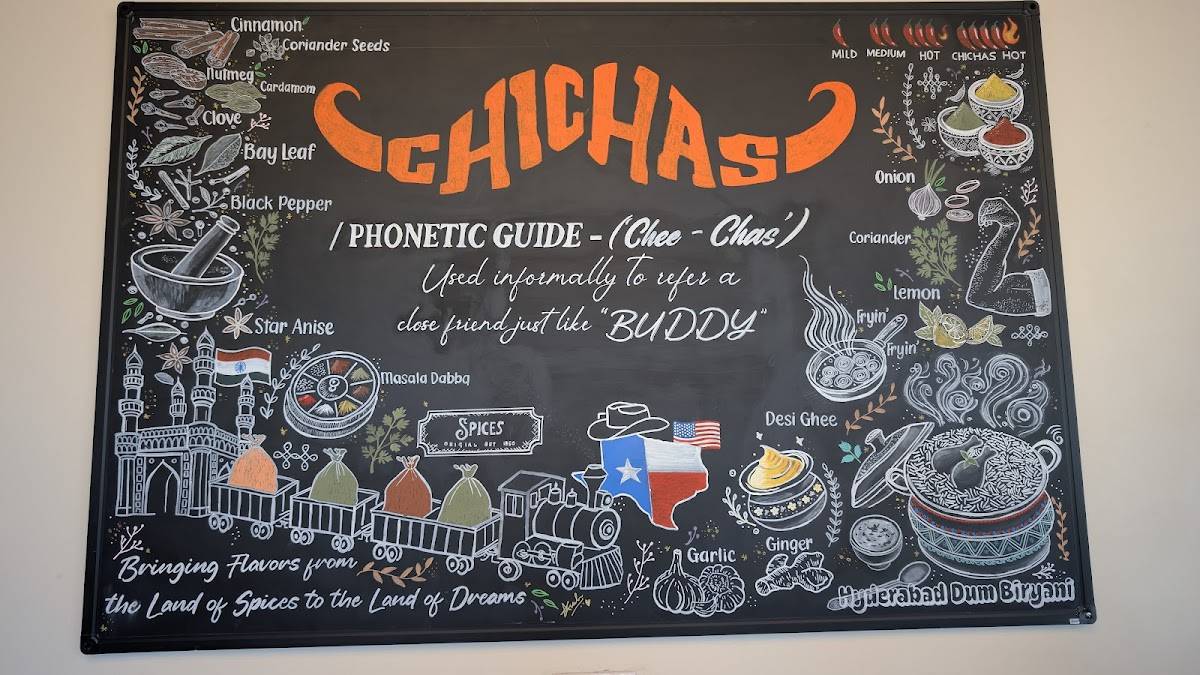 Cinnamon
Coriander Seeds
Nutmeg
Cardamom
Clove
Bay Leaf
Black Pepper
Star Anise
Masala Dabba
MILD
MEDIUM
HOT
CHICHAS HOT
CHICHAS
/ PHONETIC GUIDE - (Chee - Chas')
Used informally to refer a
close friend just like "BUDDY"
Onion
Coriander
Lemon
Fryin'
Fryin'
8
SPICES
Desi Ghee
Garlic
Ginger
Bringing Flavors from
the Land of Spices to the Land of Dreams
Hyderabad Dum Biryani